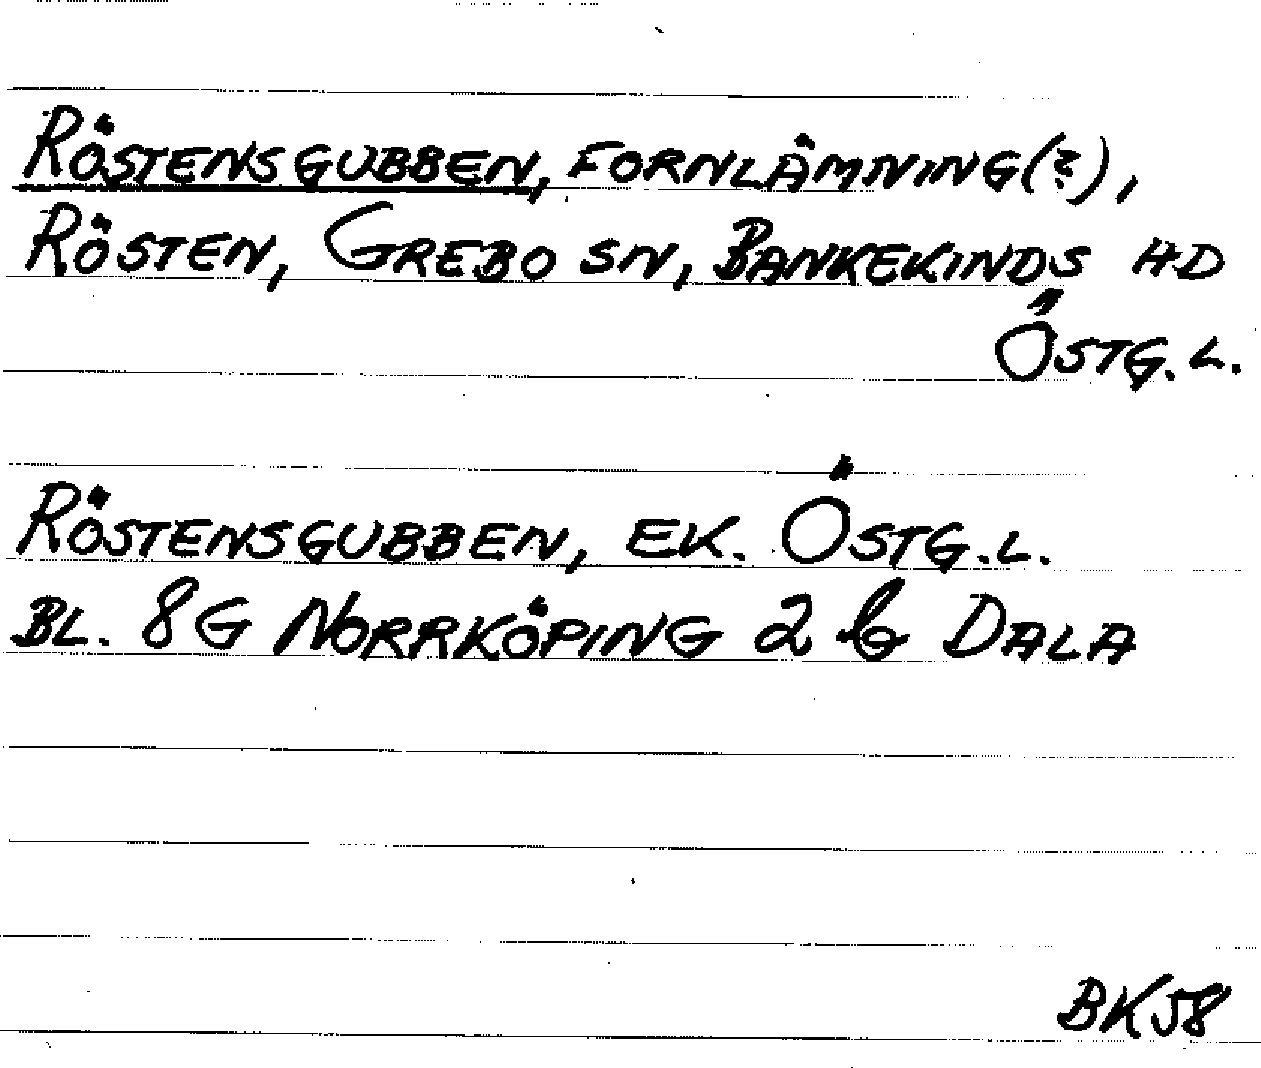 RÖSTENSGUBBEN, FORNLÄMNING(?),
RÖSTEN, GREBO SN, BANKEKINDS HD
ÖSTG. L.
RÖSTENSGUBBEN, EK. ÖSTG. L.
BL. 8G NORRKÖPING 2 b DALA
BK58